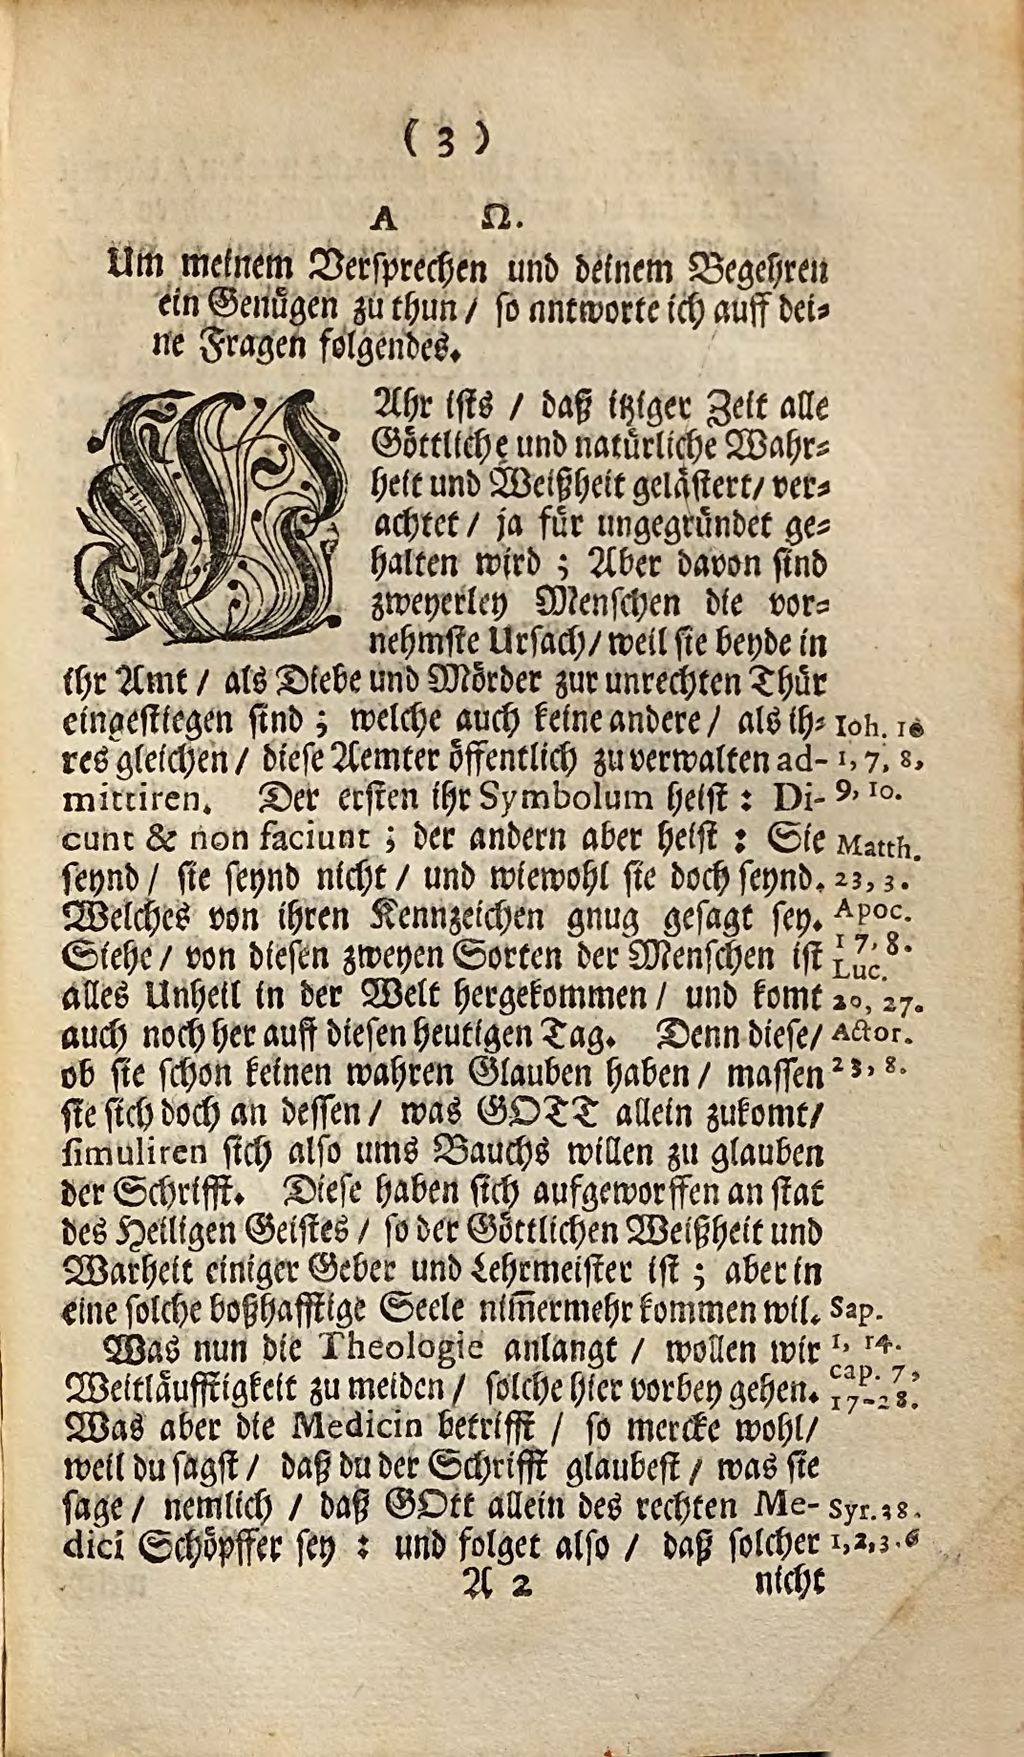 ( 3 )
A Ω.
Um meinem Versprechen und deinem Begehren
ein Genügen zu thun / so antworte ich auff dei⸗
ne Fragen folgendes.
WAhr ists / daß itziger Zeit alle
Göttliche und natürliche Wahr⸗
heit und Weißheit gelästert / ver⸗
achtet / ja für ungegründet ge⸗
halten wird ; Aber davon sind
zweyerley Menschen die vor⸗
nehmste Ursach / weil sie beyde in
ihr Amt / als Diebe und Mörder zur unrechten Thür
eingestiegen sind ; welche auch keine andere / als ih⸗ Ioh. 10
res gleichen / diese Aemter öffentlich zu verwalten ad- 1, 7, 8,
mittiren. Der ersten ihr Symbolum heist : Di- 9, 10.
cunt & non faciunt ; der andern aber heist : Sie Matth.
seynd / sie seynd nicht / und wiewohl sie doch seynd. 23, 3.
Welches von ihren Kennzeichen gnug gesagt sey. Apoc.
Siehe / von diesen zweyen Sorten der Menschen ist 17, 8. Luc.
alles Unheil in der Welt hergekommen / und komt 20, 27.
auch noch her auff diesen heutigen Tag. Denn diese / Actor.
ob sie schon keinen wahren Glauben haben / massen 23, 8.
sie sich doch an dessen / was GOTT allein zukomt /
simuliren sich also ums Bauchs willen zu glauben
der Schrifft. Diese haben sich aufgeworffen an stat
des Heiligen Geistes / so der Göttlichen Weißheit und
Warheit einiger Geber und Lehrmeister ist ; aber in
eine solche boßhafftige Seele nim̃ermehr kommen wil. Sap.
Was nun die Theologie anlangt / wollen wir 1, 14.
Weitläufftigkeit zu meiden / solche hier vorbey gehen. cap. 7, 17-28.
Was aber die Medicin betrifft / so mercke wohl /
weil du sagst / daß du der Schrifft glaubest / was sie
sage / nemlich / daß GOtt allein des rechten Me- Syr. 38.
dici Schöpffer sey : und folget also / daß solcher 1, 2, 3. 6
A 2 nicht